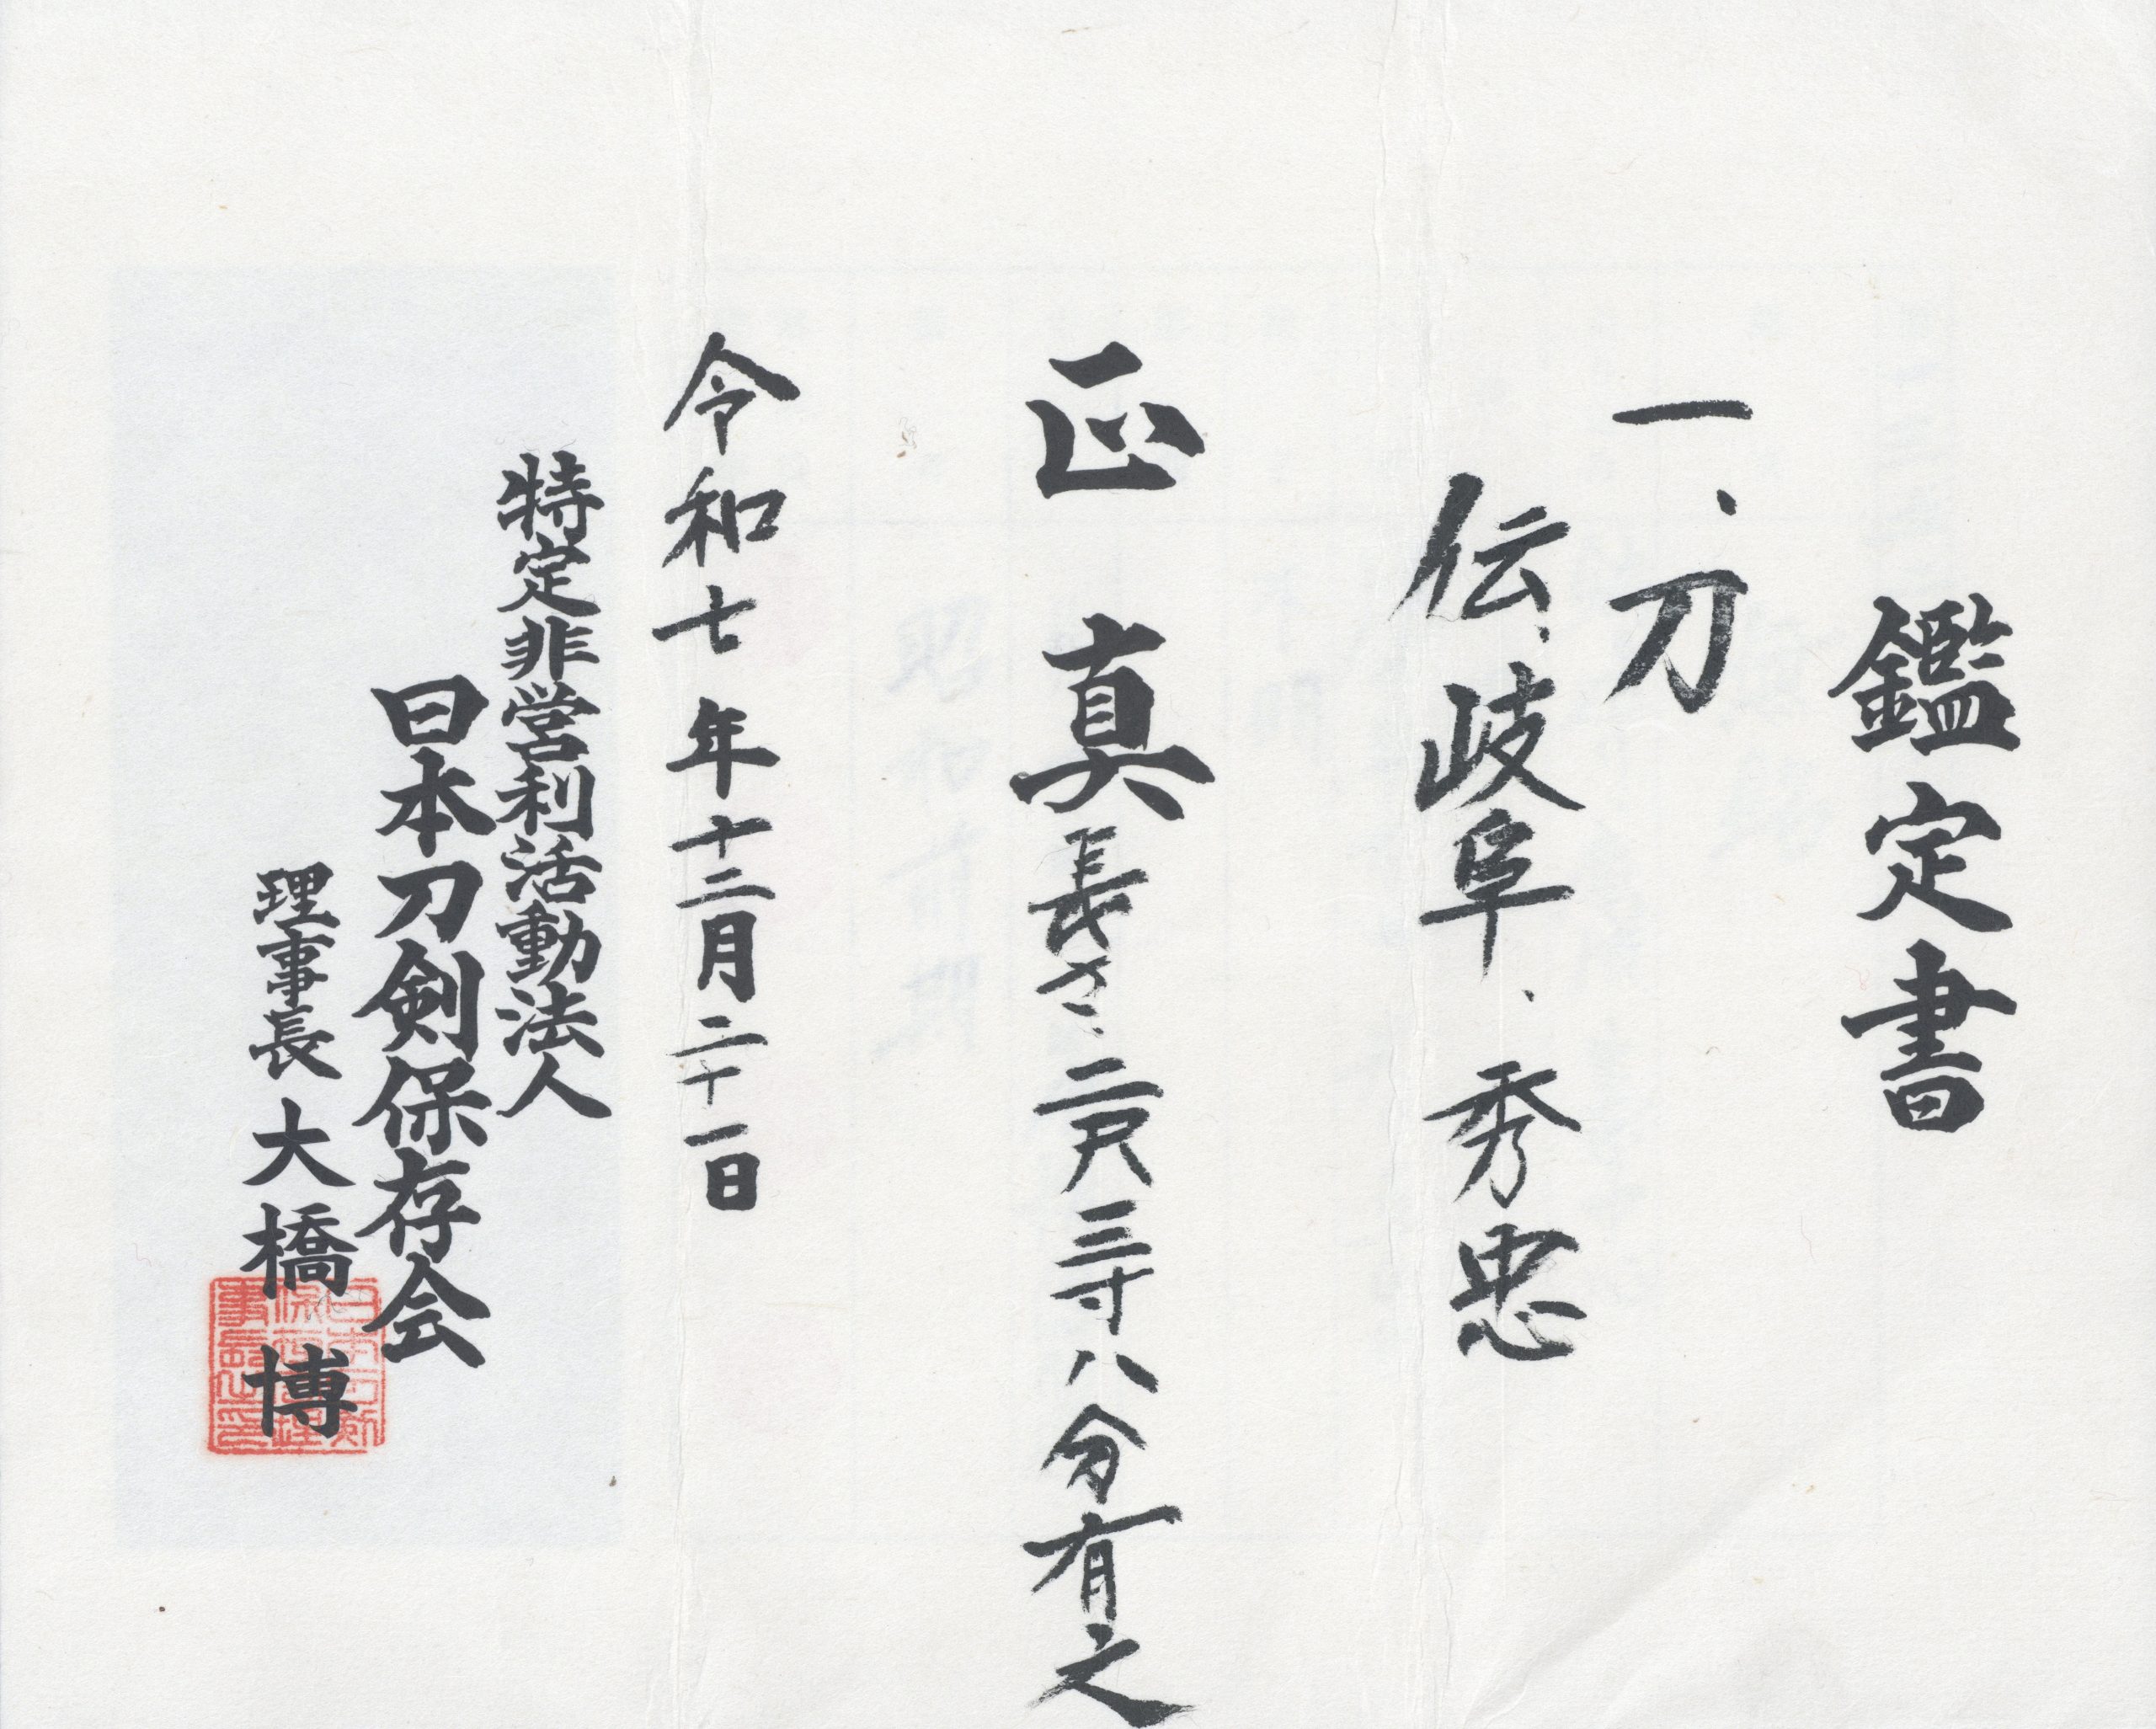 鑑定書
一、刀
伝岐阜、秀忠
正真 長さ、二尺三寸八分有之
令和七年十二月二十一日
特定非営利活動法人
日本刀剣保存会
理事長 大橋 博